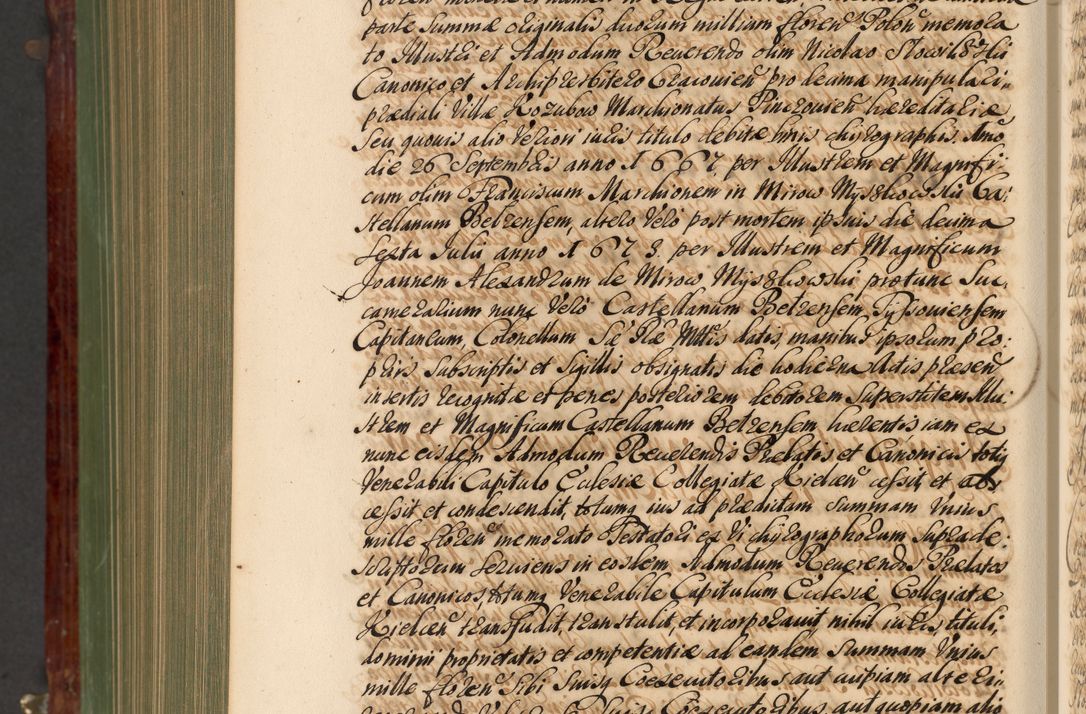 parte Summæ originalis duorum millium floren Polon memora
to Illustri et Admodum Reverendo olim Nicolao Słowikoski
Canonico et Archipresbitero Cracovien pro decima manipulari
prædiali Villæ Kozubow Marchionatus Pinczovien hæreditariæ
Seu quovis alio veriori iuris titulo debitæ binis chyrographis. Uno
die 26 Septembris anno 1667. per Illustrem et Magnifi-
cum olim Franciscum Marchionem in Mirow Myszkowski Ca-
stellanum Belzensem, altero Vero post mortem ipsius die decima
sexta Julii anno 1673. per Illustrem et Magnificum
Joannem Alexandrum de Mirow Myszkowski protunc Suc-
camerarium nunc Vero Castellanum Belzensem, Tyszoviensem
Capitaneum, Colonellum Sæ Ræ Mttis datis, manibus ipsorum pro-
priis Subscriptis et Sigillis obsignatis die hodierna Actis præsen
insertis recognitæ et penes posteriorem debitorem Superstitem Illu-
strem et Magnificum Castellanum Belzensem hærentis iam ex
nunc eisdem Admodum Reverendis Prælatis et Canonicis totiq
Venerabili Capitulo Ecclesiæ Collegiatæ Kielcen cessit et
cessit et condescendit, totumq ius ad prædictam summam Unius
mille floren memorato Testatori ex Vi chyrographorum Suprade-
scriptorum Serviens in eosdem Admodum Reverendos Prælatos
et Canonicos, totumq Venerabile Capitulum Ecclesiæ Collegiatæ
Kielcen transfudit, transtulit, et incorporavit nihil iuris, tituli,
dominii proprietatis et competentiæ ad eandem Summam Unius
mille floren Sibi Suisq Coexecutoribus aut cuipiam alteri
Coexecutoribus aut quopiam alio